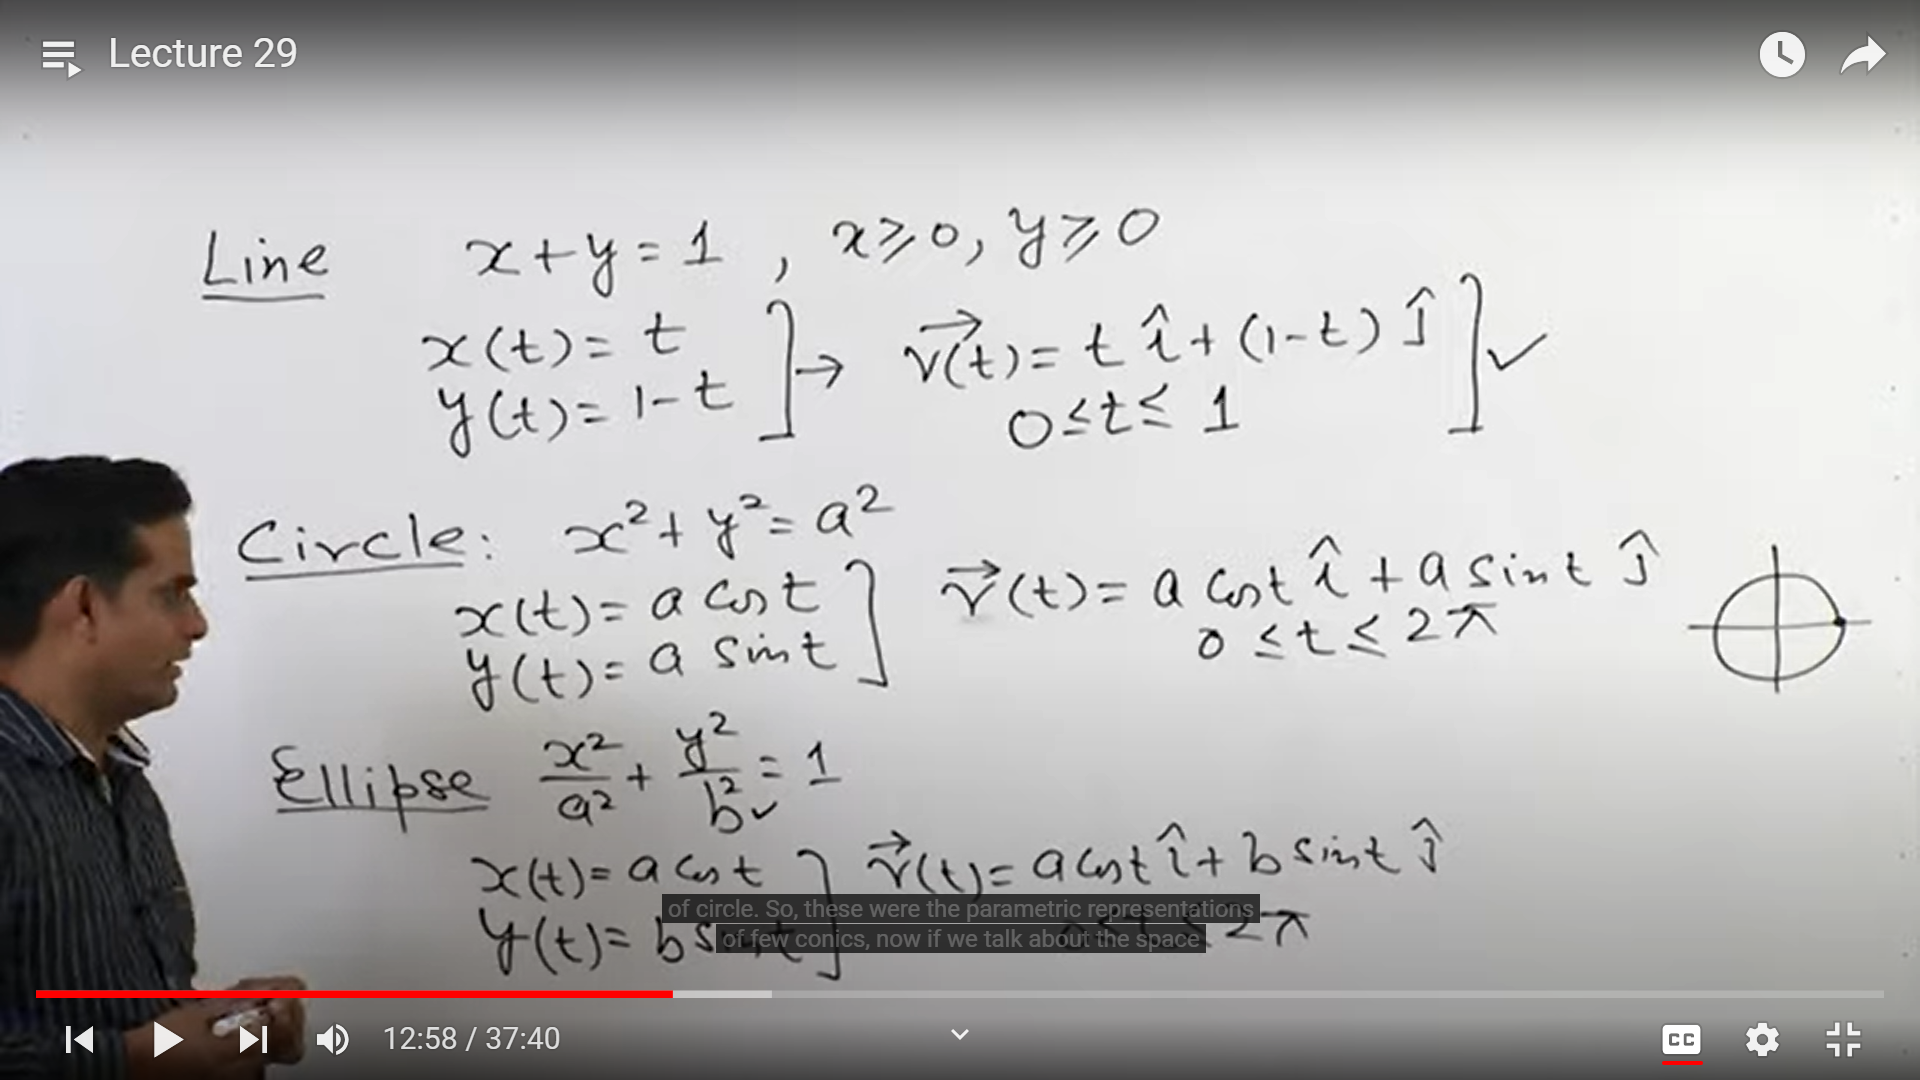 Lecture 29
Line x+y=1, x⩾0, y⩾0
x(t)= t
y(t)= 1-t ] → r⃗(t)= t î + (1-t) ĵ ] ✓
0≤t≤ 1
Circle: x²+ y²= a²
x(t)= a cos t
y(t)= a sin t ] r⃗(t)= a cost î + a sint ĵ
0 ≤ t ≤ 2π
Ellipse x²/a² + y²/b² = 1
x(t)= a cos t ] r⃗(t)= a cost î + b sint ĵ
y(t)= b sin t 0≤t≤2π
of circle. So, these were the parametric representations
of few conics, now if we talk about the space
12:58 / 37:40
CC